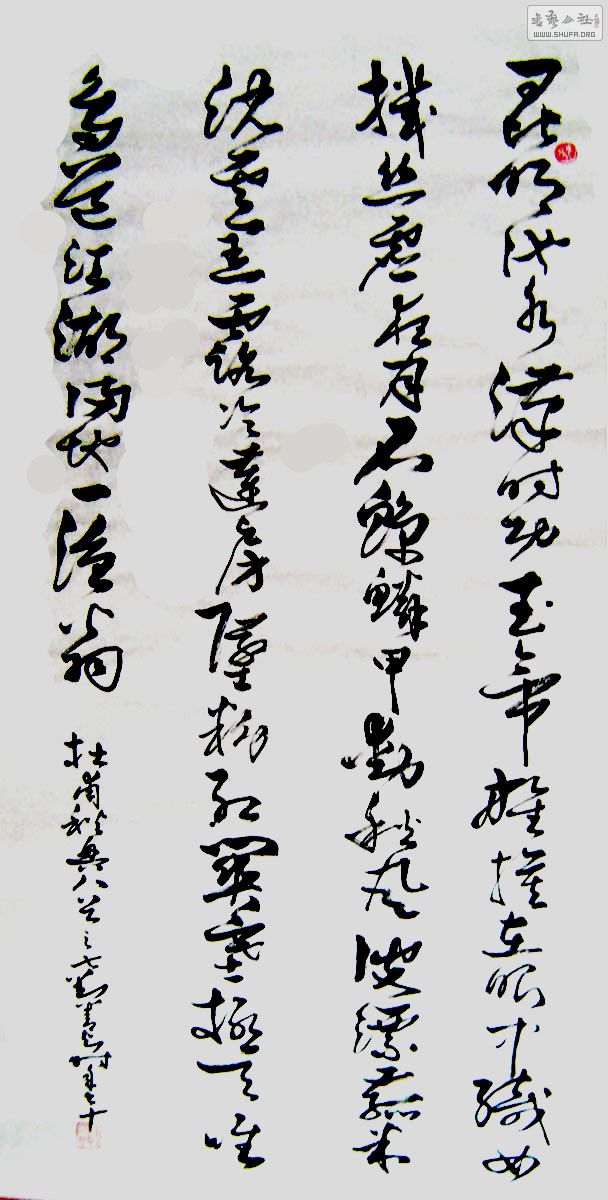 書藝公社
WWW.SHUFA.ORG
昆明池水漢時功武帝旌旗在眼中織女
機絲虛夜月石鯨鱗甲動秋風波漂菰米
沈雲黑露冷蓮房墜粉紅關塞極天唯
鳥道江湖滿地一漁翁
杜甫秋興八首之七劉時年七十